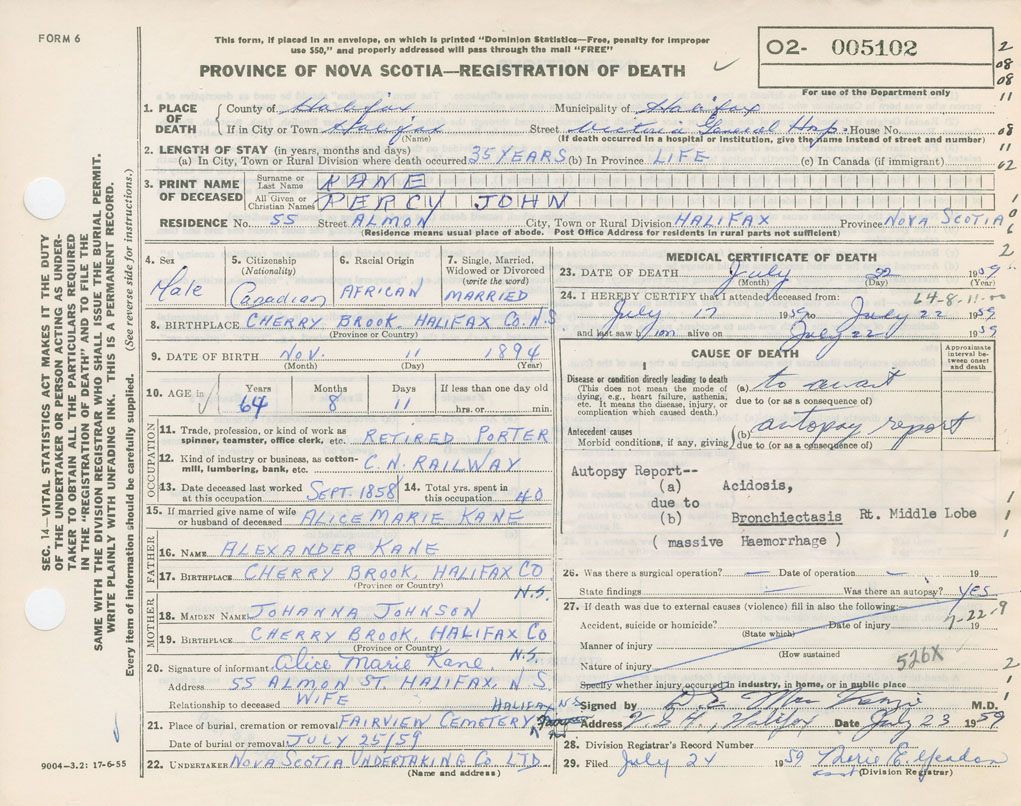 FORM 6
This form, if placed in an envelope, on which is printed "Dominion Statistics—Free, penalty for improper
use $50," and properly addressed will pass through the mail "FREE"
PROVINCE OF NOVA SCOTIA—REGISTRATION OF DEATH
O2- 005102
For use of the Department only
2
08
08
11
08
11
02
1. PLACE OF DEATH
County of Halifax Municipality of Halifax
If in City or Town Halifax Street Victoria General Hosp. House No.
(Name) (If death occurred in a hospital or institution, give the name instead of street and number)
2. LENGTH OF STAY (in years, months and days)
(a) In City, Town or Rural Division where death occurred 35 YEARS (b) In Province LIFE (c) In Canada (if immigrant)
3. PRINT NAME OF DECEASED
Surname or Last Name KANE
All Given or Christian Names PERCY JOHN
RESIDENCE No. 55 Street ALMON City, Town or Rural Division HALIFAX Province NOVA SCOTIA
(Residence means usual place of abode. Post Office Address for residents in rural parts not sufficient)
SEC. 14—VITAL STATISTICS ACT MAKES IT THE DUTY
OF THE UNDERTAKER OR PERSON ACTING AS UNDER-
TAKER TO OBTAIN ALL THE PARTICULARS REQUIRED
IN THE "REGISTRATION OF DEATH" AND TO FILE THE
SAME WITH THE DIVISION REGISTRAR WHO SHALL ISSUE THE BURIAL PERMIT.
WRITE PLAINLY WITH UNFADING INK. THIS IS A PERMANENT RECORD.
Every item of information should be carefully supplied. (See reverse side for instructions.)
4. Sex
Male
5. Citizenship
(Nationality)
Canadian
6. Racial Origin
AFRICAN
7. Single, Married,
Widowed or Divorced
(write the word)
MARRIED
8. BIRTHPLACE CHERRY BROOK, HALIFAX CO. N.S
(Province or Country)
9. DATE OF BIRTH Nov. 11 1894
(Month) (Day) (Year)
10. AGE in
Years Months Days If less than one day old
64 8 11 hrs. or min.
OCCUPATION
11. Trade, profession, or kind of work as
spinner, teamster, office clerk, etc. RETIRED PORTER
12. Kind of industry or business, as cotton-
mill, lumbering, bank, etc. C.N. RAILWAY
13. Date deceased last worked
at this occupation SEPT. 1858
14. Total yrs. spent in
this occupation 40
15. If married give name of wife
or husband of deceased ALICE MARIE KANE
FATHER
16. NAME ALEXANDER KANE
17. BIRTHPLACE CHERRY BROOK, HALIFAX CO
(Province or Country) N.S.
MOTHER
18. MAIDEN NAME JOHANNA JOHNSON
19. BIRTHPLACE CHERRY BROOK, HALIFAX CO
(Province or Country) N.S.
20. Signature of informant Alice Marie Kane.
Address 55 ALMON ST. HALIFAX, N.S.
Relationship to deceased WIFE
HALIFAX N.S.
21. Place of burial, cremation or removal FAIRVIEW CEMETERY
Date of burial or removal JULY 25/59
22. UNDERTAKER NOVA SCOTIA UNDERTAKING CO LTD
(Name and address)
9004-3.2: 17-6-55
MEDICAL CERTIFICATE OF DEATH
23. DATE OF DEATH July 22 1959
(Month) (Day) (Year)
24. I HEREBY CERTIFY that I attended deceased from: 64-8-11-00
July 17 1959 to July 22 1959
and last saw him alive on July 22 1959
CAUSE OF DEATH
Approximate
interval be-
tween onset
and death
I
Disease or condition directly leading to death
(This does not mean the mode of
dying, e.g., heart failure, asthenia,
etc. It means the disease, injury, or
complication which caused death.)
(a) to await
due to (or as a consequence of)
Antecedent causes
Morbid conditions, if any, giving
(b) autopsy report
due to (or as a consequence of)
Autopsy Report--
(a) Acidosis,
due to
(b) Bronchiectasis Rt. Middle Lobe
( massive Haemorrhage )
26. Was there a surgical operation? — Date of operation — 19
State findings Was there an autopsy? YES
27. If death was due to external causes (violence) fill in also the following: 7-22-9
Accident, suicide or homicide? Date of injury 19
(State which)
Manner of injury
(How sustained
Nature of injury 526X
Specify whether injury occurred in industry, in home, or in public place
Signed by D.E. MacKenzie M.D.
Address V.G.H., Halifax Date July 23 1959
28. Division Registrar's Record Number
29. Filed July 24 1959 Marie E.
(Division Registrar)